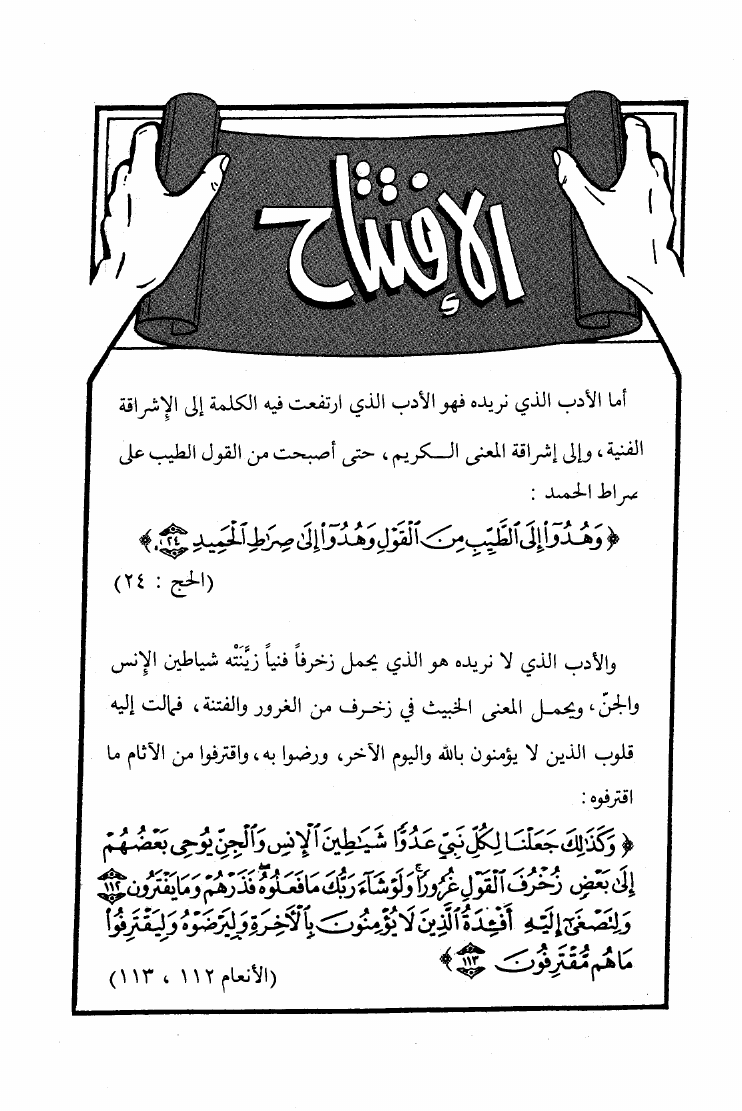 الإفتتاح
أما الأدب الذي نريده فهو الأدب الذي ارتفعت فيه الكلمة إلى الإشراقة
الفنية، وإلى إشراقة المعنى الكريم، حتى أصبحت من القول الطيب على
صراط الحميد :
﴿ وَهُدُوٓاْ إِلَى ٱلطَّيِّبِ مِنَ ٱلْقَوْلِ وَهُدُوٓاْ إِلَىٰ صِرَٰطِ ٱلْحَمِيدِ ٢٤ ﴾
(الحج : ٢٤)
والأدب الذي لا نريده هو الذي يحمل زخرفاً فنياً زيَّنَتْه شياطين الإنس
والجنّ، ويحمل المعنى الخبيث في زخرف من الغرور والفتنة، فمالت إليه
قلوب الذين لا يؤمنون بالله واليوم الآخر، ورضوا به، واقترفوا من الأثام ما
اقترفوه :
﴿ وَكَذَٰلِكَ جَعَلْنَا لِكُلِّ نَبِيٍّ عَدُوًّا شَيَٰطِينَ ٱلْإِنسِ وَٱلْجِنِّ يُوحِى بَعْضُهُمْ
إِلَىٰ بَعْضٍ زُخْرُفَ ٱلْقَوْلِ غُرُورًا ۚ وَلَوْ شَآءَ رَبُّكَ مَا فَعَلُوهُ ۖ فَذَرْهُمْ وَمَا يَفْتَرُونَ ١١٢
وَلِتَصْغَىٰٓ إِلَيْهِ أَفْـِٔدَةُ ٱلَّذِينَ لَا يُؤْمِنُونَ بِٱلْـَٔاخِرَةِ وَلِيَرْضَوْهُ وَلِيَقْتَرِفُواْ
مَا هُم مُّقْتَرِفُونَ ١١٣ ﴾
(الأنعام ١١٢ ، ١١٣)